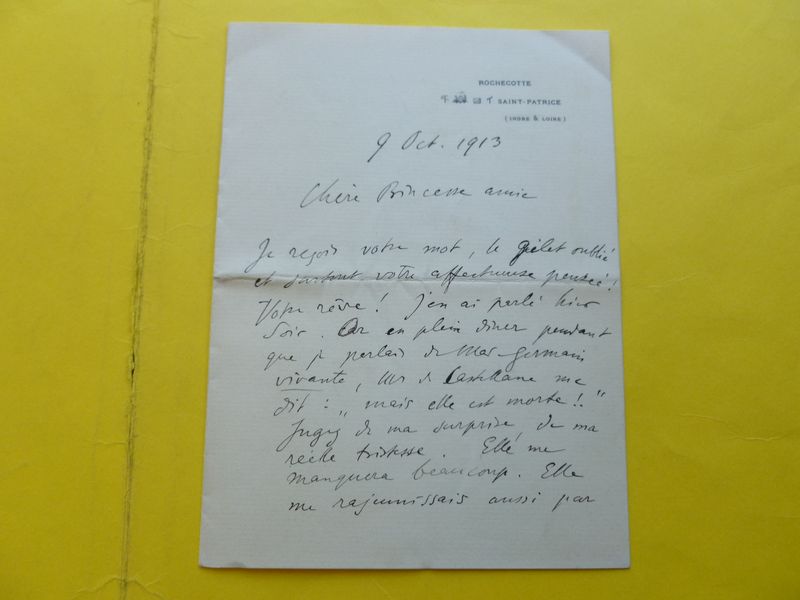 ROCHECOTTE
SAINT-PATRICE
(INDRE & LOIRE)
9 Oct. 1913
Chère Princesse amie
Je reçois votre mot, le gilet oublié
et surtout votre affectueuse pensée!
Votre rêve! J'en ai parlé hier
Soir. Car en plein diner pendant
que je parlais de Mad. Germain
vivante, Mr de Castellane me
dit : „ mais elle est morte!."
Jugez de ma surprise, de ma
réelle tristesse. Elle me
manquera beaucoup. Elle
me rajeunissais aussi par